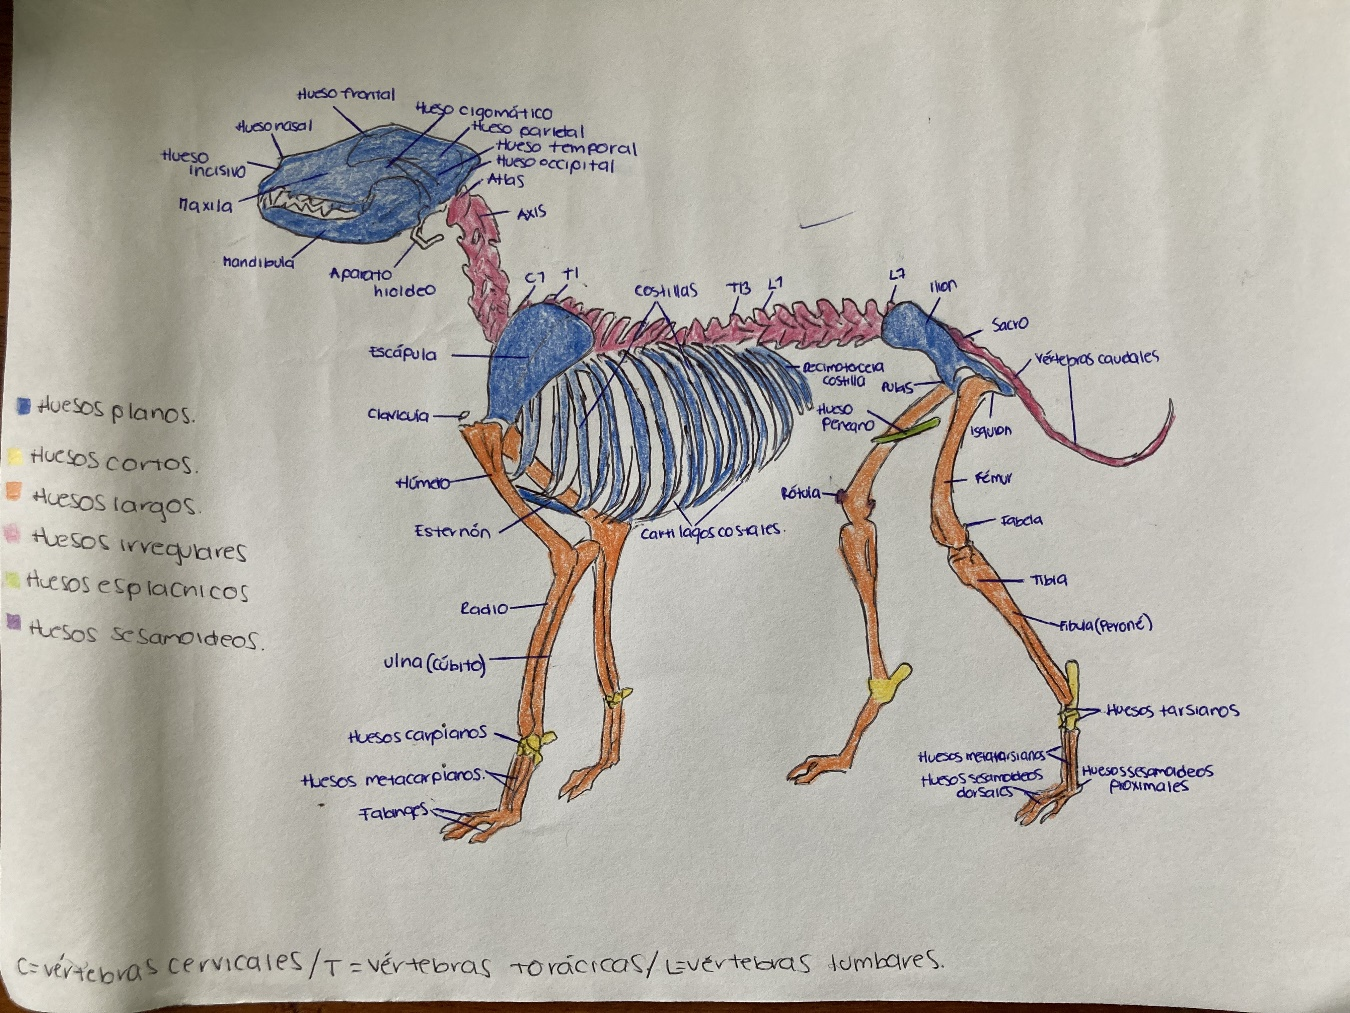 Hueso frontal
Hueso cigomático
Hueso nasal
Hueso parietal
Hueso temporal
Hueso
incisivo
Hueso occipital
Atlas
Maxila
Axis
Mandibula
Aparato
hioideo
C7
T1
Costillas
T13
L1
L7
Ilion
Sacro
Escápula
Vértebras caudales
Decimotercia
costilla
Pubis
Clavícula
Hueso
Peneano
Isquion
Húmero
Rótula
Fémur
Esternón
Cartílagos costales.
Fabela
Tibia
Radio
Fibula (Peroné)
Ulna (cúbito)
Huesos carpianos
Huesos tarsianos
Huesos metacarpianos.
Huesos metatarsianos
Huesos sesamoideos
dorsales
Huesos sesamoideos
proximales
Falanges
Huesos planos.
Huesos cortos.
Huesos largos.
Huesos irregulares
Huesos esplacnicos
Huesos sesamoideos.
C=vértebras cervicales/T=vértebras torácicas/L=vértebras lumbares.